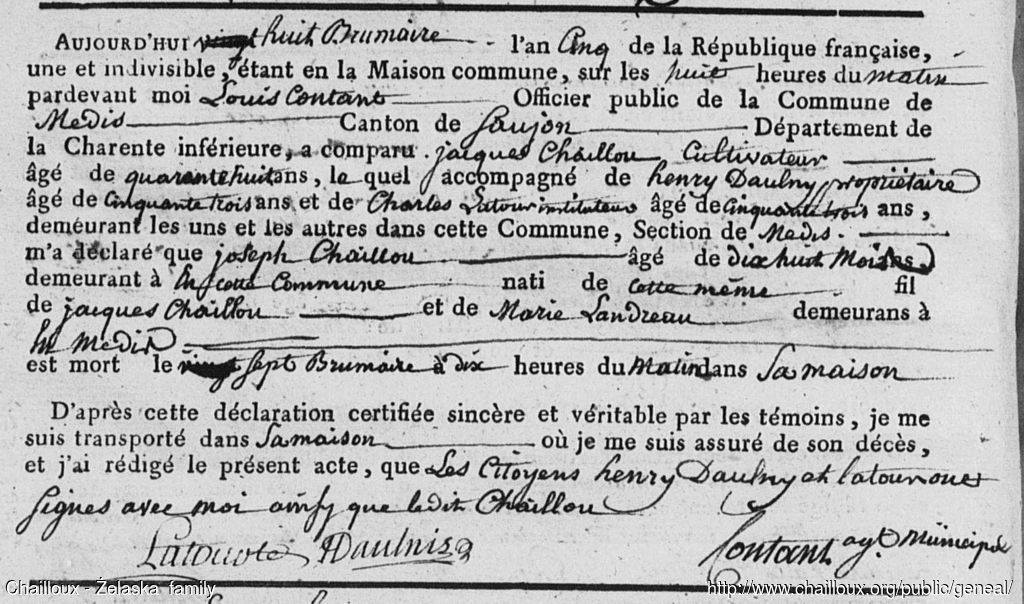 AUJOURD'HUI vingt huit Brumaire l'an Cinq de la République française,
une et indivisible, étant en la Maison commune, sur les huit heures du matin
pardevant moi Louis Contant Officier public de la Commune de
Medis Canton de Saujon Département de
la Charente inférieure, a comparu jacques Chaillou Cultivateur
âgé de quarante huit ans, le quel accompagné de henry Daulny propriétaire
âgé de Cinquante trois ans et de Charles Latour instituteur âgé de Cinquante trois ans,
demeurant les uns et les autres dans cette Commune, Section de Medis.
m'a déclaré que joseph Chaillou âgé de dix huit Mois
demeurant à En cette Commune nati de cette même fil
de jacques Chaillou et de Marie Landreau demeurans à
Medis
est mort le vingt sept Brumaire à dix heures du Matin dans Sa maison
D'après cette déclaration certifiée sincère et véritable par les témoins, je me
suis transporté dans Sa maison où je me suis assuré de son décès,
et j'ai rédigé le présent acte, que Les Citoyens henry Daulny et latour ont
Signes avec moi ainsy que ledit Chaillou
HDaulnis Contant agt. Municipal
Chailloux - Żelaska family http://www.chailloux.org/public/geneal/